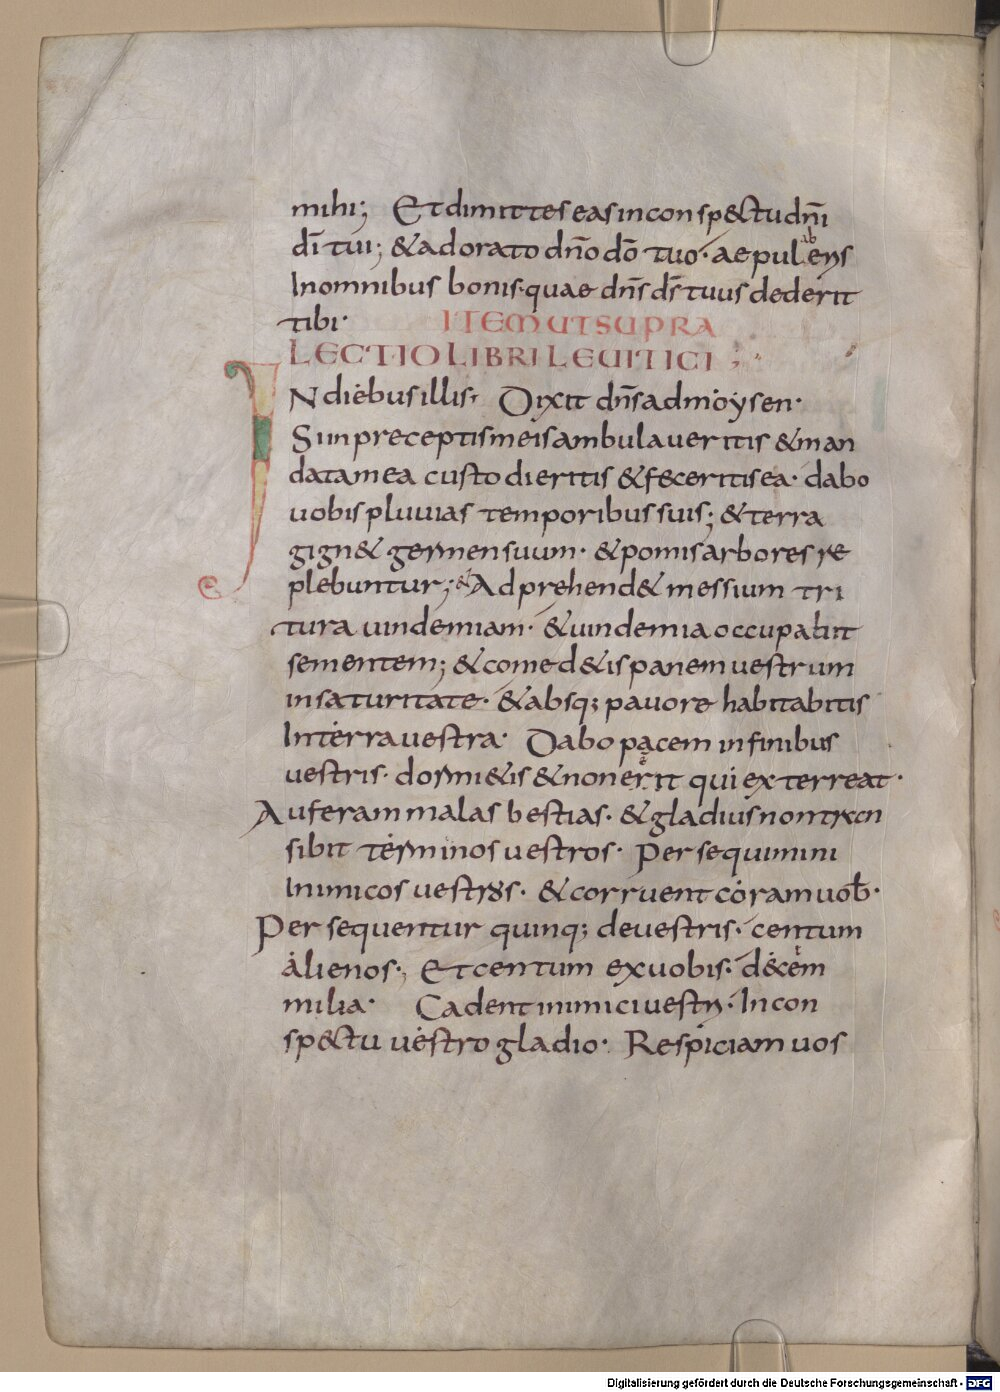 mihi; Et dimittes eas in conspectu dn̄i
dī tui; & adorato dn̄o dō tuo· aepulaberis
In omnibus bonis· quae dn̄s ds̄ tuus dederit
tibi· ITEM UT SUPRA
LECTIO LIBRI LEUITICI;
IN diebus illis· Dixit dn̄s ad moysen·
Si in preceptis meis ambulaueritis & man
data mea custodieritis & feceritis ea· dabo
uobis pluuias temporibus suis; & terra
gign& germen suum· & pomis arbores re
plebuntur; & Adprehend& messium tri
tura uindemiam· & uindemia occupabit
sementem; & comed&is panem uestrum
in saturitate· & absq; pauore habitabitis
In terra uestra· Dabo pacem in finibus
uestris· dormi&is & non erit qui exterreat·
Auferam malas bestias· & gladius non tran
sibit terminos uestros· Persequimini
Inimicos uestros· & corruent coram uob̄·
Persequentur quinq; de uestris· centum
alienos·, Et centum ex uobis· decem
milia· Cadent inimici uestri· In con
sp&tu uestro gladio· Respiciam uos
Digitalisierung gefördert durch die Deutsche Forschungsgemeinschaft - DFG